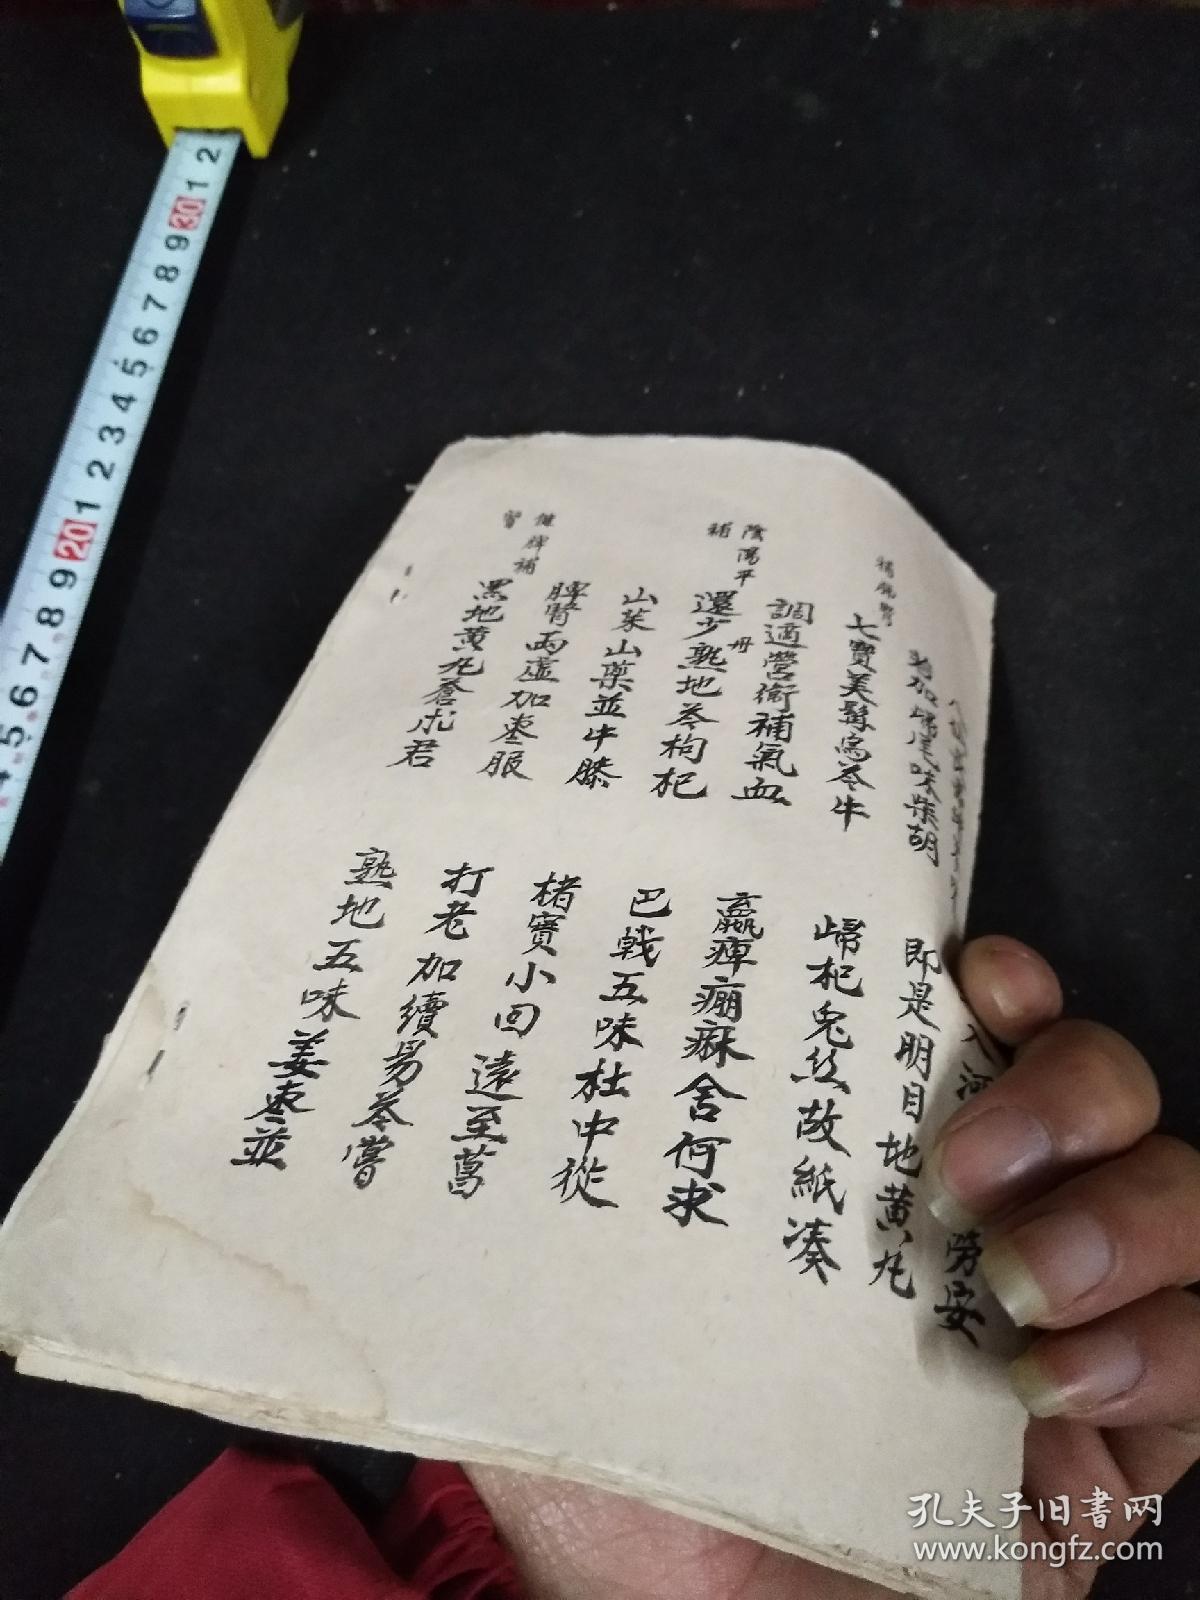 若加歸尾味柴胡
即是明目地黃丸
補肝腎
七寶美髯烏苓牛
歸杞兔丝故紙凑
調適營衛補氣血
羸瘅痈痳舍何求
陰陽平補
還少丹熟地苓枸杞
巴戟五味杜中從
山茱山藥並牛膝
楮實小回遠至菖
脾腎两虚加枣服
打老加續易苓嘗
健脾補腎
黑地黄丸蒼朮君
熟地五味姜枣並
孔夫子旧书网
www.kongfz.com
30 1 2
20 1 2 3 4 5 6 7 8 9
5 6 7 8 9